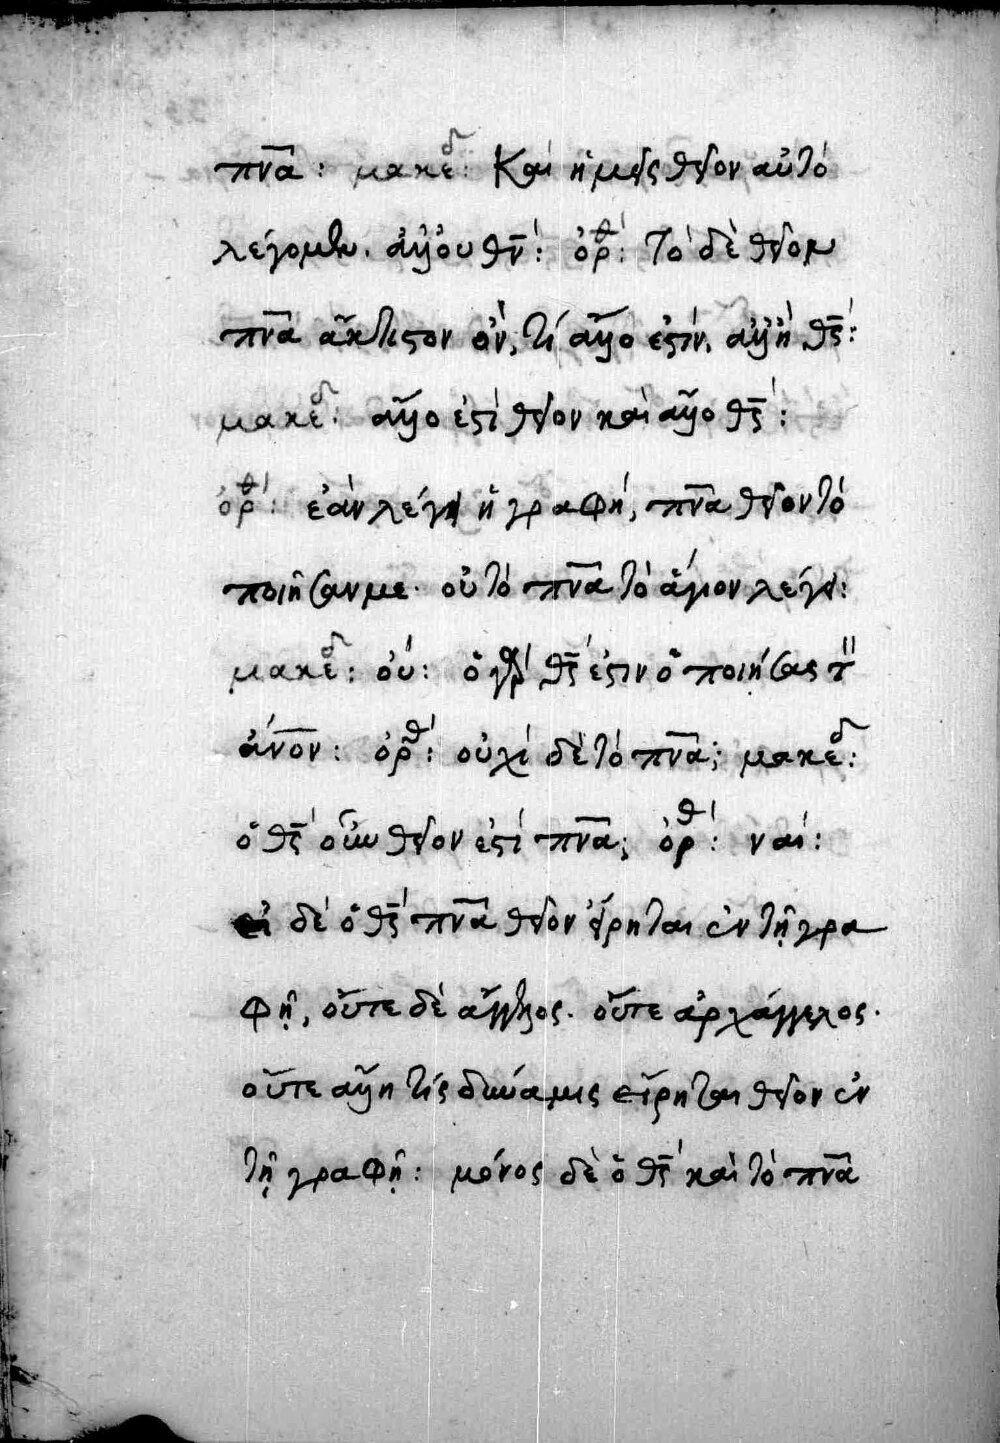 πνα: μακεδ: Και ἡμεῖς θεῖον αὐτὸ
λέγομεν. ἀλλ' οὐ θν: ὀρθ: Τὸ δὲ θεῖον
πνα ἄκτιστον ὄν, τί ἄλλο ἐστίν, ἀλλ' ἢ θς:
μακεδ: ἄλλο ἐστὶ θεῖον καὶ ἄλλο θς:
ὀρθ: ἐὰν λέγη ἡ γραφή, πνα θεῖον τὸ
ποιῆσαν με· οὐ τὸ πνα τὸ ἅγιον λέγει:
μακεδ: οὔ: ὁ γὰρ θς ἐστιν ὁ ποιήσας τ
ἀνον: ὀρθ: οὐχὶ δὲ τὸ πνα; μακεδ:
ὁ θς οὖν θεῖον ἐστὶ πνα; ὀρθ: ναί:
εἰ δὲ ὁ θς πνα θεῖον εἴρηται ἐν τῇ γρα
φῇ, οὔτε δὲ ἄγγελος· οὔτε ἀρχάγγελος·
οὔτε ἄλλη τίς δύναμις εἴρηται θεῖον ἐν
τῇ γραφῇ: μόνος δὲ ὁ θς καὶ τὸ πνα